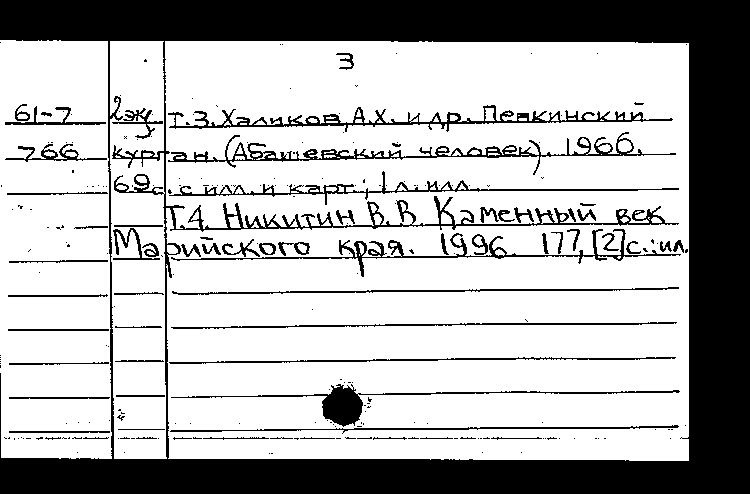 3
61-7 2эк Т.3. Халиков, А.Х. и др. Пепкинский
766 курган. (Абашевский человек). 1966.
69 с. с илл. и карт; 1 л. илл.
Т.4. Никитин В.В. Каменный век
Марийского края. 1996. 177, [2]с.:ил.